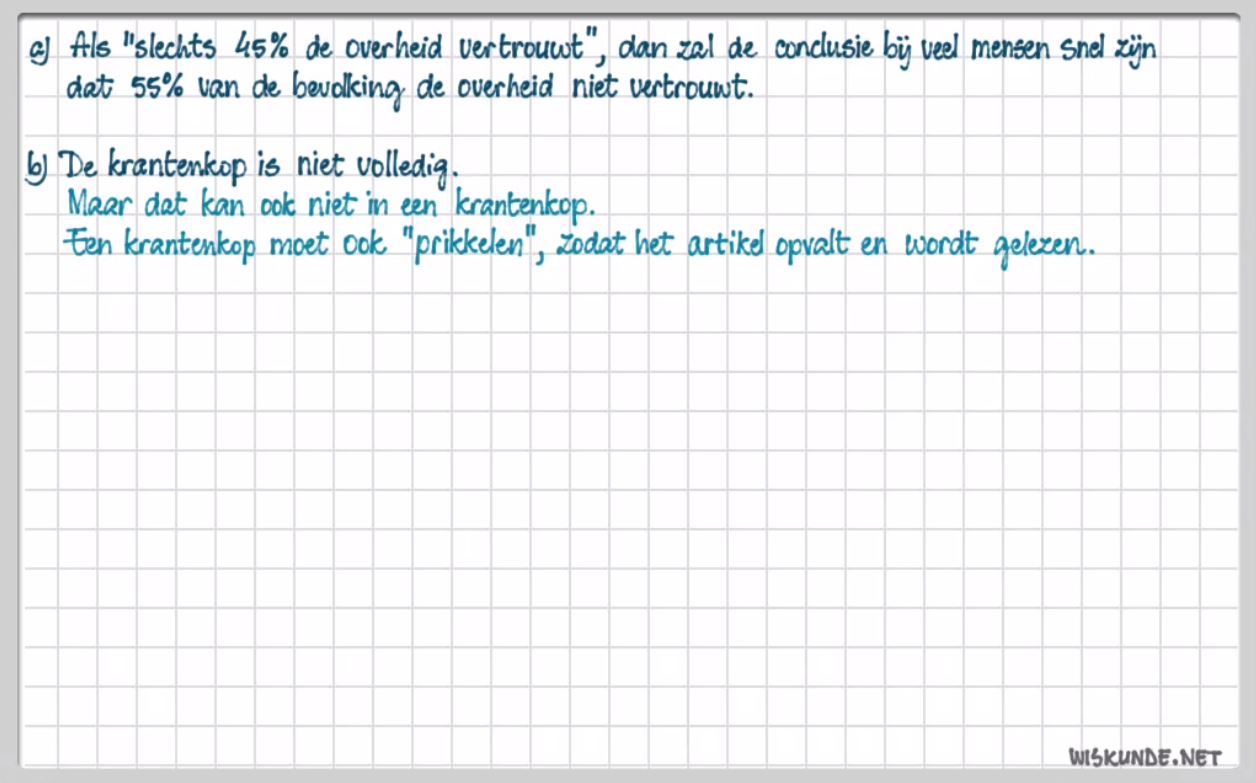 a) Als "slechts 45% de overheid vertrouwt", dan zal de conclusie bij veel mensen snel zijn
dat 55% van de bevolking de overheid niet vertrouwt.
b) De krantenkop is niet volledig.
Maar dat kan ook niet in een krantenkop.
Een krantenkop moet ook "prikkelen", zodat het artikel opvalt en wordt gelezen.
WISKUNDE.NET